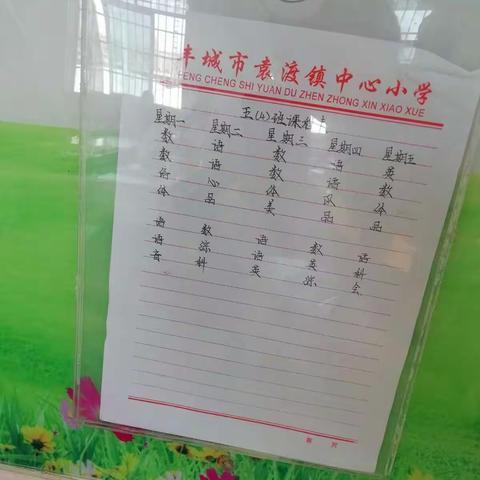 丰城市袁渡镇中心小学
FENG CHENG SHI YUAN DU ZHEN ZHONG XIN XIAO XUE
五(4)班课程表
星期一 星期二 星期三 星期四 星期五
数 语 数 语 英
数 语 数 语 数
心 体 队 体
体 品 美 品 品
语 数 语 数 语
语 综 语 英 科
音 科 英 综 会